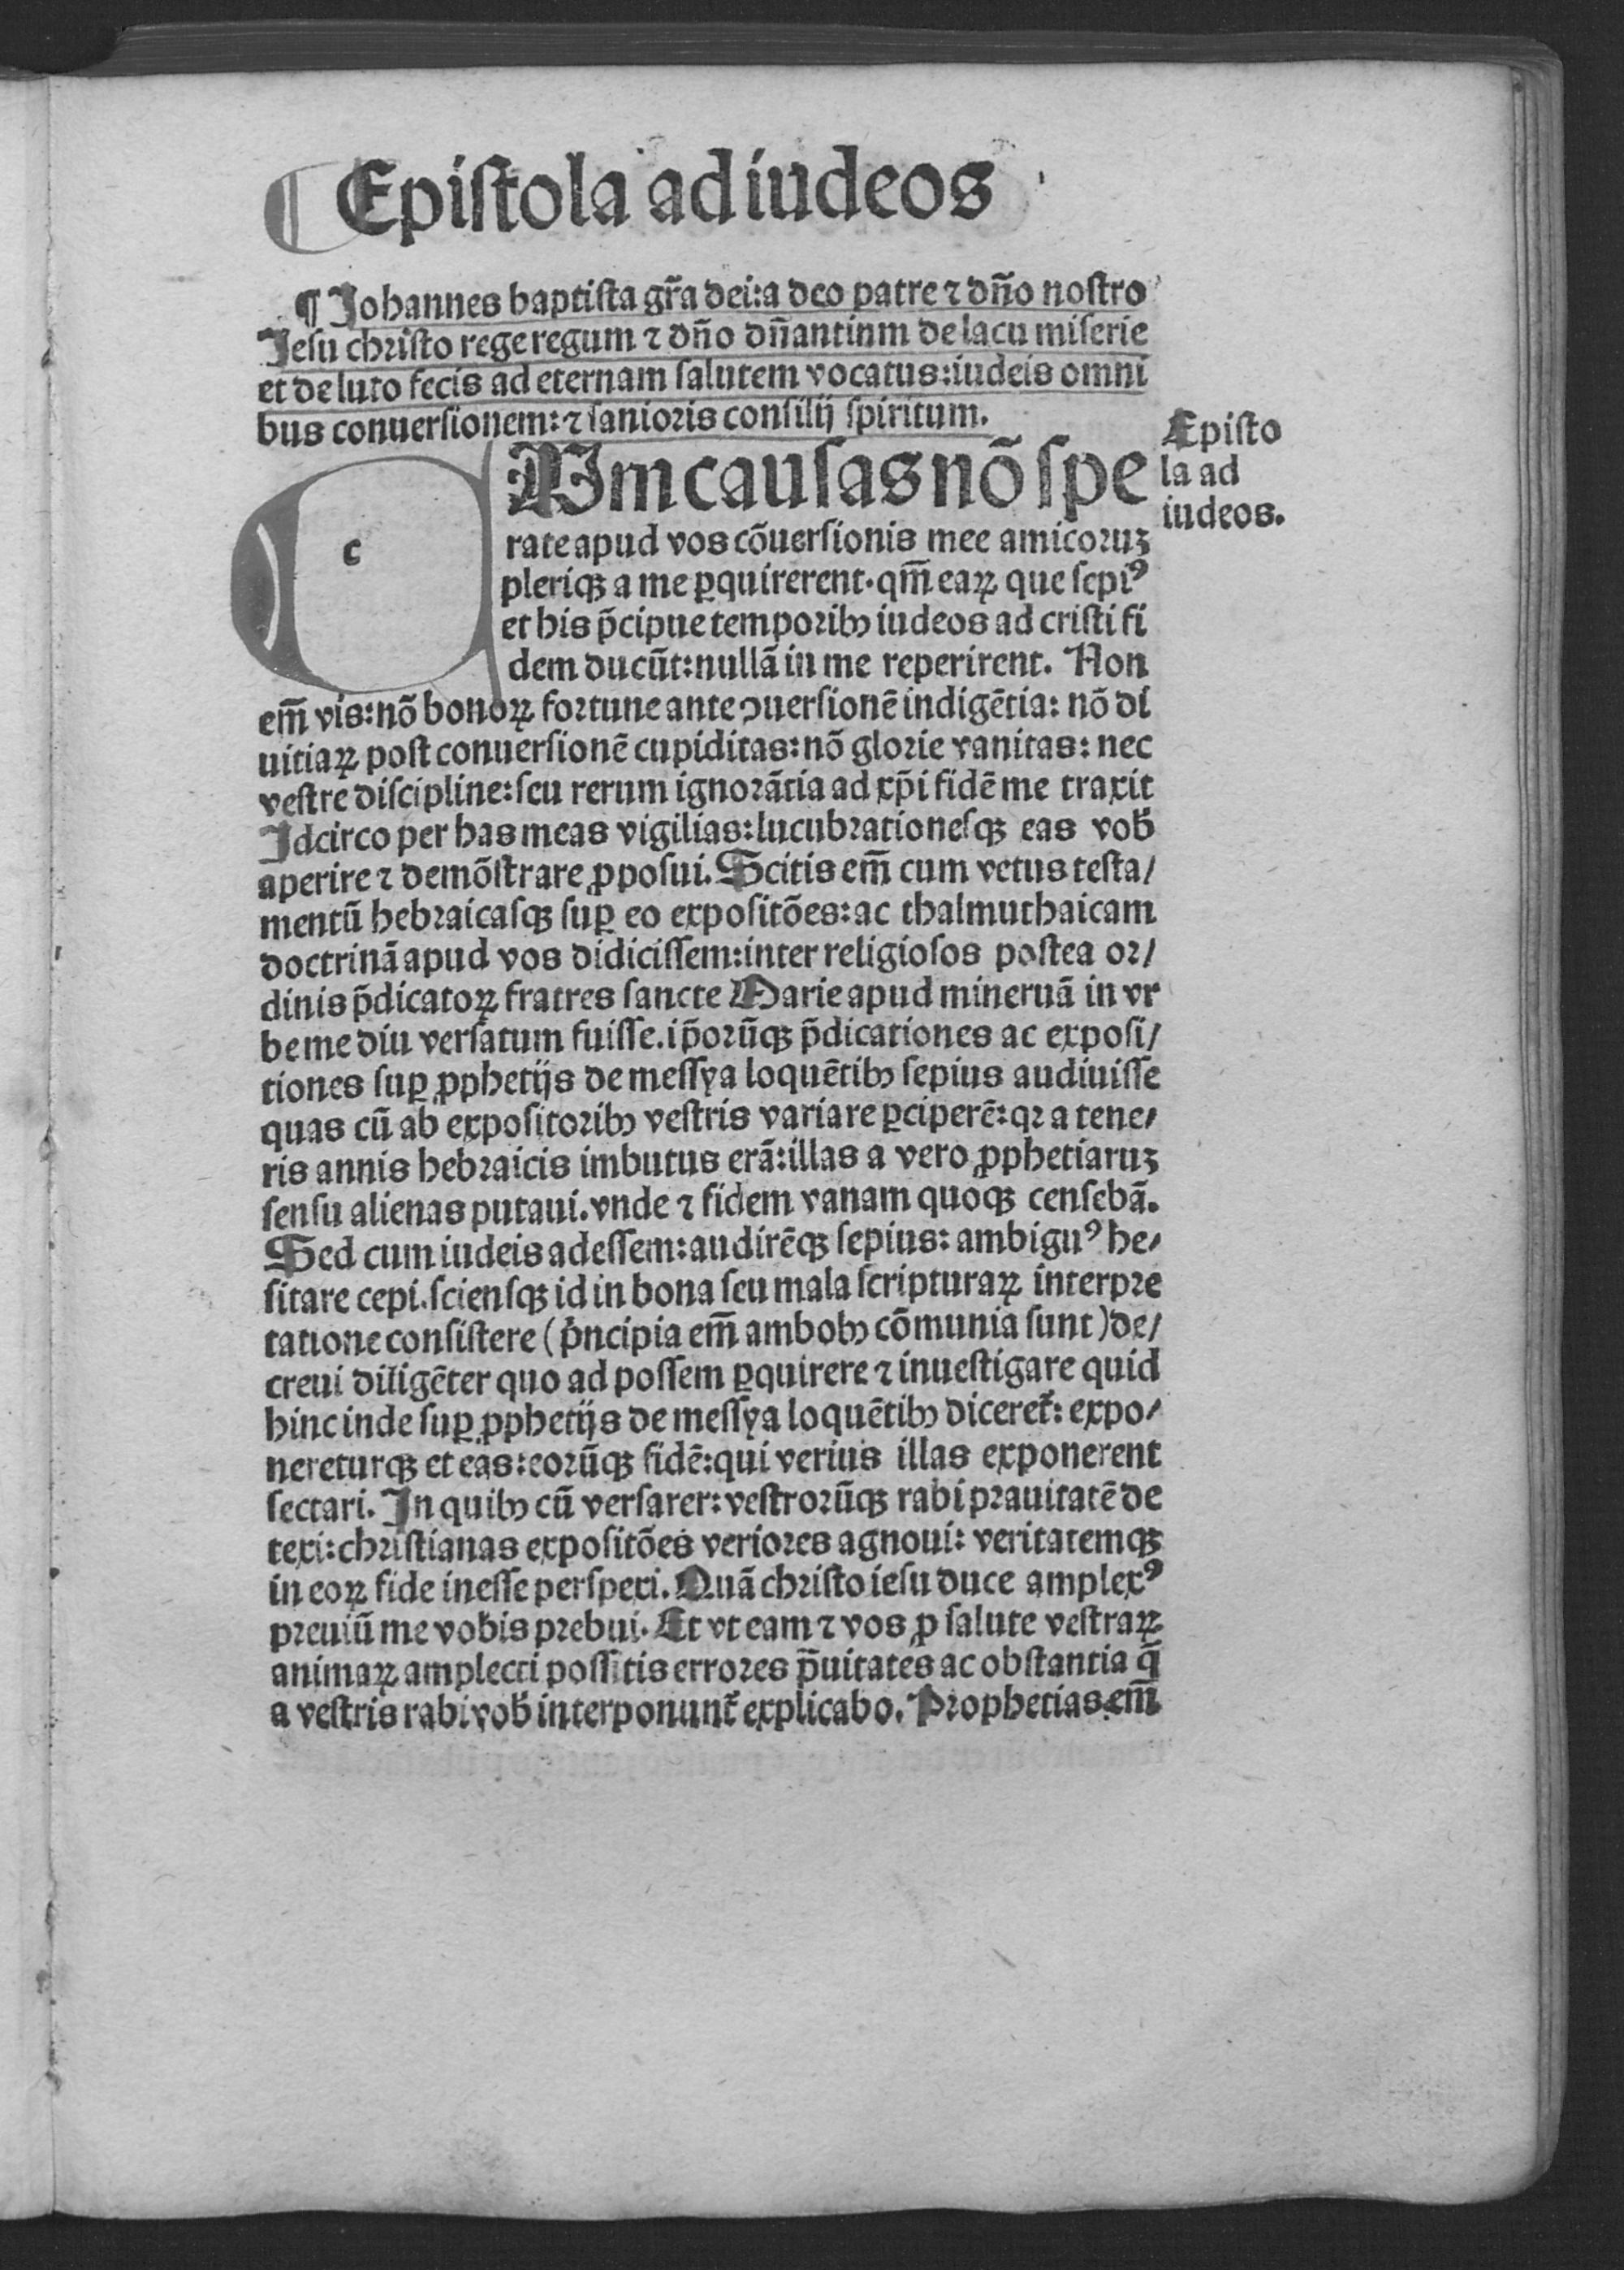 ¶ Epiſtola ad iudeos
¶ Johannes baptiſta gr̃a dei: a deo patre ⁊ dño noſtro
Jeſu chriſto rege regum ⁊ dño dñantinm de lacu miſerie
et de luto fecis ad eternam ſalutem vocatus: iudeis omni
bus conuerſionem: ⁊ ſanioris conſilij ſpiritum.
Epiſto
la ad
iudeos.
cUm cauſas nõ ſpe
rate apud vos cõuerſionis mee amicoruꝫ
pleriqꝫ a me ꝑquirerent. qm̃ eaꝝ que ſepiꝰ
et his p̃cipue temporibꝫ iudeos ad criſti fi
dem ducũt: nullã in me reperirent. Non
em̃ vis: nõ bonoꝝ fortune ante ꝯuerſionẽ indigẽtia: nõ di
uitiaꝝ poſt conuerſionẽ cupiditas: nõ glorie vanitas: nec
veſtre diſcipline: ſeu rerum ignorãtia ad xp̃i fidẽ me traxit
Idcirco per has meas vigilias: lucubrationeſqꝫ eas vob̃
aperire ⁊ demõſtrare ꝓpoſui. Scitis em̃ cum vetus teſta/
mentũ hebraicaſqꝫ ſuꝑ eo expoſitões: ac thalmuthaicam
doctrinã apud vos didiciſſem: inter religioſos poſtea or/
dinis p̃dicatoꝝ fratres ſancte Marie apud mineruã in vr
be me diu verſatum fuiſſe. ip̃orũqꝫ p̃dicationes ac expoſi/
tiones ſuꝑ ꝓphetijs de meſſya loquẽtibꝫ ſepius audiuiſſe
quas cũ ab expoſitoribꝫ veſtris variare ꝑciperẽ: qꝛ a tene/
ris annis hebraicis imbutus erã: illas a vero ꝓphetiaruꝫ
ſenſu alienas putaui. vnde ⁊ fidem vanam quoqꝫ cenſebã.
Sed cum iudeis adeſſem: audirẽqꝫ ſepius: ambiguꝰ he/
ſitare cepi. ſcienſqꝫ id in bona ſeu mala ſcripturaꝝ interpre
tatione conſiſtere (p̃ncipia em̃ ambobꝫ cõmunia ſunt) de/
creui diligẽter quo ad poſſem ꝑquirere ⁊ inueſtigare quid
hinc inde ſuꝑ ꝓphetijs de meſſya loquẽtibꝫ diceret̃: expo/
nereturqꝫ et eas: eorũqꝫ fidẽ: qui verius illas exponerent
ſectari. In quibꝫ cũ verſarer: veſtrorũqꝫ rabi prauitatẽ de
texi: chriſtianas expoſitões veriores agnoui: veritatemqꝫ
in eoꝝ fide ineſſe perſpexi. Quã chriſto ieſu duce amplexꝰ
preuiũ me vobis prebui. Et vt eam ⁊ vos ꝓ ſalute veſtraꝝ
animaꝝ amplecti poſſitis errores p̃uitates ac obſtantia q̃
a veſtris rabi vob̃ interponunt̃ explicabo. Prophetias em̃